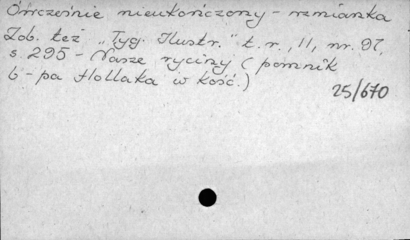 ówcześnie nieukończony - wzmianka
Zob. też „Tyg. Ilustr." t. r., 11, nr. 97,
s 295 - Nasze ryciny (pomnik
b-pa Hollaka w kość.)
25/670